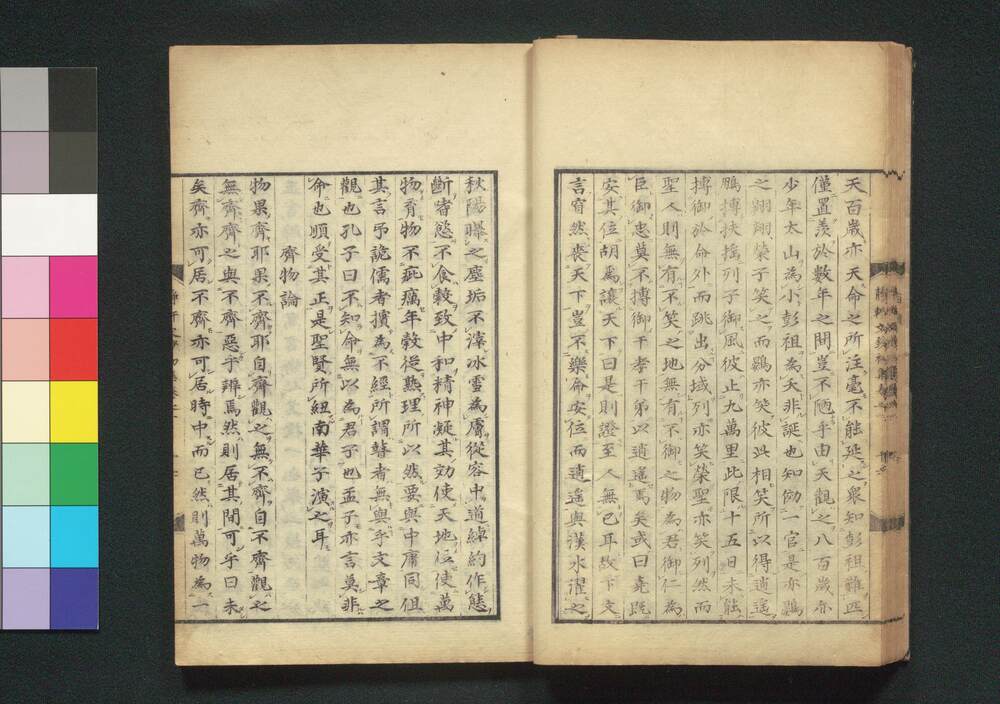 天百歳亦天命之所注毫不能延之衆知彭祖難匹
僅置羨於數年之間豈不陋乎由天觀之八百歳亦
少年太山為小彭祖為夭非誕也知効一官是亦鷃
之翺翔榮子笑之而鷃亦笑彼此相笑所以得逍遙
鵬搏扶搖列子御風彼止九萬里此限十五日未能
搏御於命外而跳出分域列亦笑榮聖亦笑列然而
聖人則無有不笑之地無有不御之物為君御仁為
臣御忠莫不搏御干孝干弟以逍遙焉矣或曰堯既
安其位胡為讓天下曰是則證至人無己耳故下文
言窅然喪天下豈不樂命安位而逍遙與漢水濯之
秋陽曝之塵垢不滓冰雪為膚從容中道綽約作態
斷皆慾不食穀致中和精神凝其効使天地位使萬
物育物不疵癘年穀從熟理所以然要與中庸同但
其言弔詭儒者擯為不經所謂瞽者無與乎文章之
觀也孔子曰不知命無以為君子也孟子亦言莫非
命也順受其正是聖賢所紐南華子演之耳
齊物論
物果齊耶果不齊耶自齊觀之無不齊自不齊觀之
無齊齊之與不齊惡乎辨焉然則居其間可乎曰未
矣齊亦可居不齊亦可居時中而已然則萬物為一